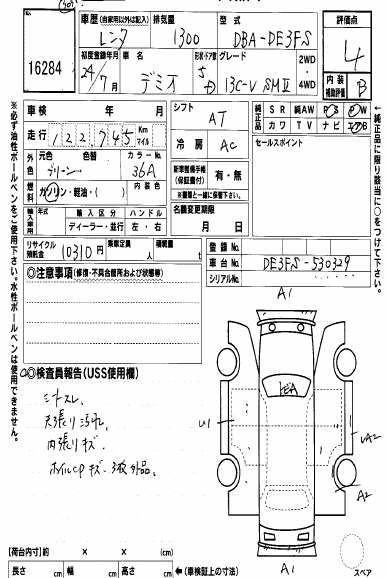 16284
車歴(自家用以外は記入)
レンタ
排気量
1300
型式
DBA-DE3FS
評価点
4
初度登録年月
24/7月
車名
デミオ
形状・ドア数
5 D
グレード
13C-V SMⅡ
2WD
4WD
内装補助評価
B
車検 年 月
シフト
AT
純正品
SR 純AW PS PW
カワ TV ナビ エアB
走行 122,745 Km マイル
冷房
AC
セールスポイント
元色
色替
カラーNo.
外色
グリーン
36A
新車整備手帳(保証書付)
有・無
※書類と一緒に保管下さい。
燃料
ガソリン・軽油・( )
内装色
名義変更期限
月 日
輸入車用
年式
輸入区分
ハンドル
ディーラー・並行
左・右
リサイクル預託金
10310円
乗車定員
人
積載量
t
登録No.
車台No.
DE3FS-530329
シリアルNo.
◎注意事項(修復・不具合箇所および状態等)
A1
◎検査員報告(USS使用欄)
シートスレ
天張り汚れ
内張りキズ
ホイルCPキズ
U1
UA2
A2
A1
スペア
【荷台内寸】約 × × (cm)
長さ cm 幅 cm 高さ cm ←(車検証上の寸法)
※必ず油性ボールペンをご使用下さい。水性ボールペンは使用できません。
←純正品に限り該当に○をつけて下さい。